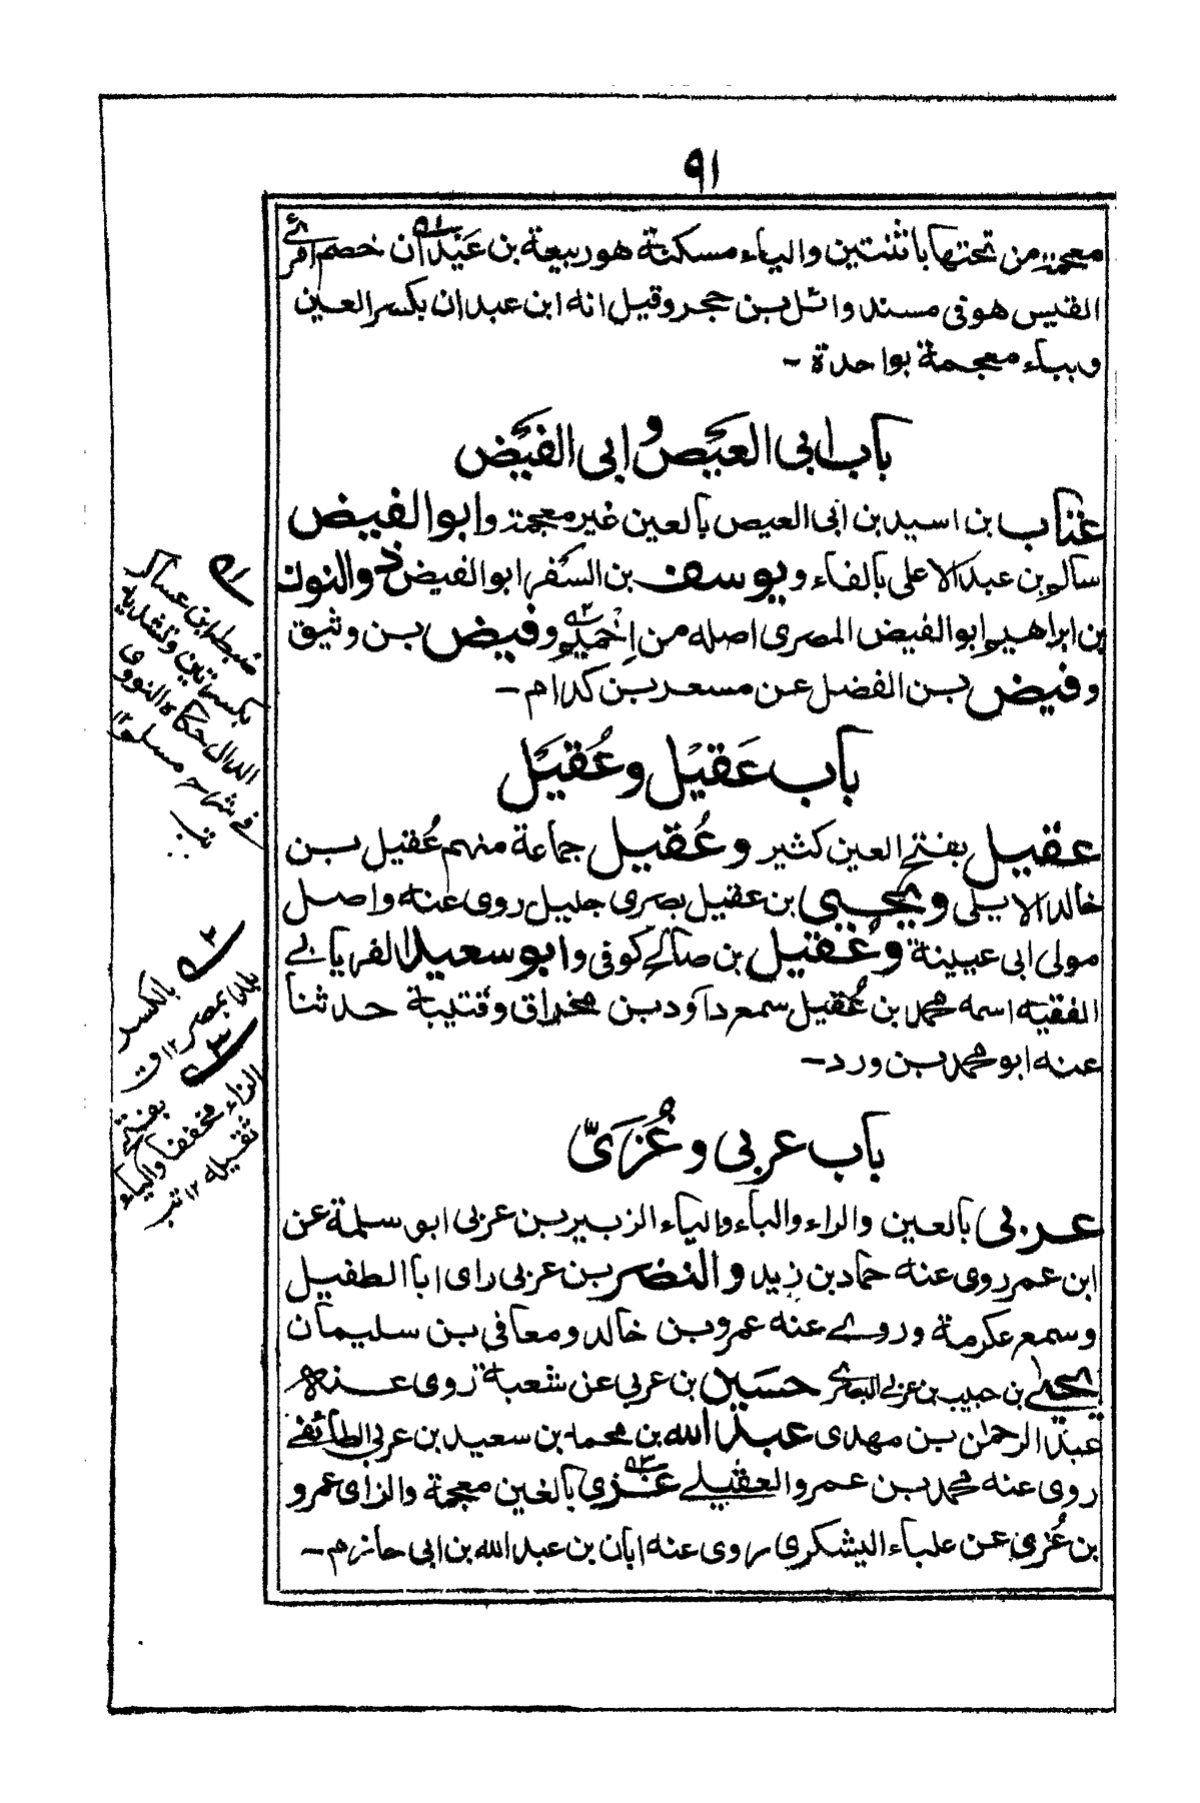 ٩١
معجمة من تحتها باثنتين والياء مسكنة هو ربيعة بن عَيْدان خصم امرئ
القيس هو فى مسند وائل بن حجر وقيل انه ابن عبدان بكسر العين
وبباء معجمة بواحدة -
باب ابى العيص و ابى الفيض
عتاب بن اسيد بن ابى العيص بالعين غير معجمة وابو الفيض
سالم بن عبد الاعلى بالفاء ويوسف بن السفر ابو الفيض ذو النون
بن ابراهيم ابو الفيض المصرى اصله من اخميم وفيض بن وثيق
وفيض بن الفضل عن مسعر بن كدام -
باب عَقِيْل و عُقَيْل
عقيل بفتح العين كثير وعُقيل جماعة منهم عُقيل بن
خالد الايلى ويحيى بن عقيل بصرى جليل روى عنه واصل
مولى ابى عيينة وعُقيل بن صالح كوفى وابو سعيد الفريابى
الفقيه اسمه محمد بن عُقيل سمع داود بن مخراق وقتيبة حدثنا
عنه ابو محمد بن ورد -
باب عربى و غُزَىّ
عربى بالعين والراء والباء والياء الزبير بن عربى ابو سلمة عن
ابن عمر روى عنه حماد بن زيد والنضر بن عربى راى ابا الطفيل
وسمع عكرمة وروى عنه عمرو بن خالد ومعافى بن سليمان
يحيى بن حبيب بن عربى البصرى حسين بن عربى عن شعبة روى عنه
عبد الرحمن بن مهدى عبد الله بن محمد بن سعيد بن عربى الطائفى
روى عنه محمد بن عمرو العقيلى غزى بالغين معجمة والزاى عمرو
بن غُزى عن علباء اليشكرى روى عنه ابان بن عبد الله بن ابى حازم -
١
ضبطه ابن عساكر
بكسرتين وتشديد
الدال حكاه النووى
فى شرح مسلم ١٢
٢
بالكسر
بلد بمصر ١٢ ق
٣
بفتح
الزاء مخففا والياء
ثقيلة ١٢